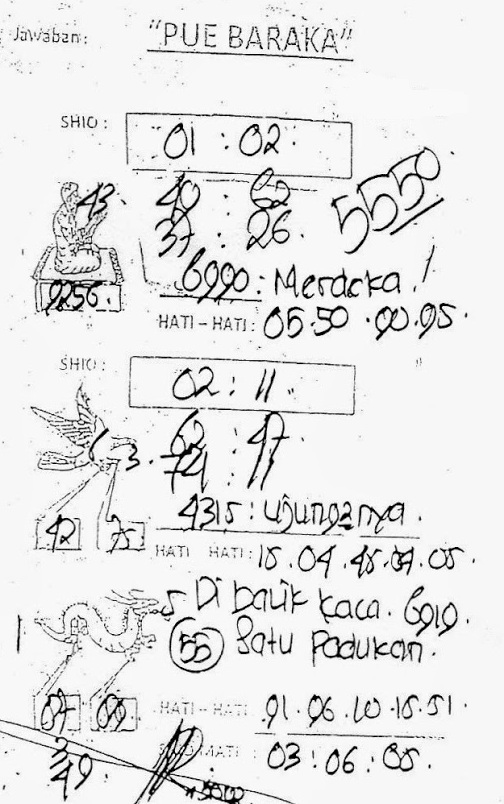 Jawaban: "PUE BARAKA"
SHIO: 01 : 02.
43. 49 : 62
37 : 26. 5550.
9256. 6990 : Merdeka !
HATI - HATI : 05.50 .90.95.
SHIO: 02 : 11.
62 : 47
3. 74 : 11
4315 : Ujung2nya.
42 75 HATI HATI: 15.04.45.54.05.
5 Di balik kaca. 6919.
55 Satu Padukan.
HATI - HATI 91.96.10.15.51.
MATI : 03 : 06 : 05.